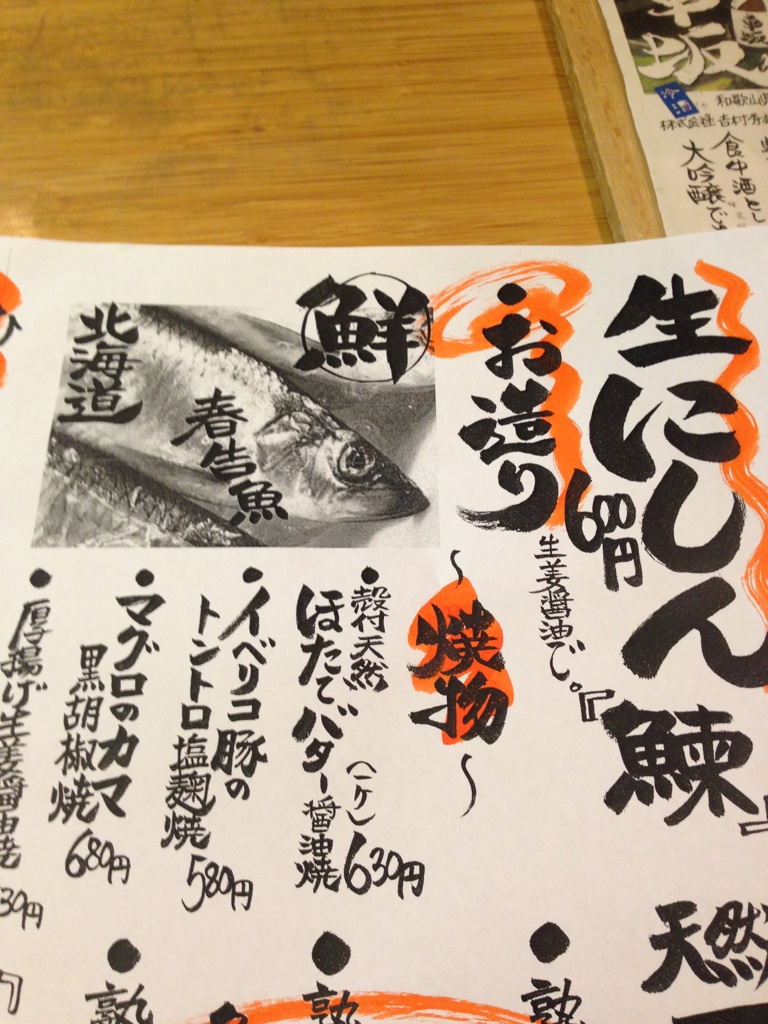 冷酒
和歌山県
食中酒とし
大吟醸でき
生にしん
『鰊』
お造り
600円
生姜醤油で。
鮮
北海道
春告魚
～焼物～
・殻付天然
ほたてバター醤油焼
(一ケ)
630円
・イベリコ豚の
トントロ塩麹焼
580円
・マグロのカマ
黒胡椒焼
680円
・厚揚げ生姜醤油焼
30円
天然
・熟
・熟
・熟